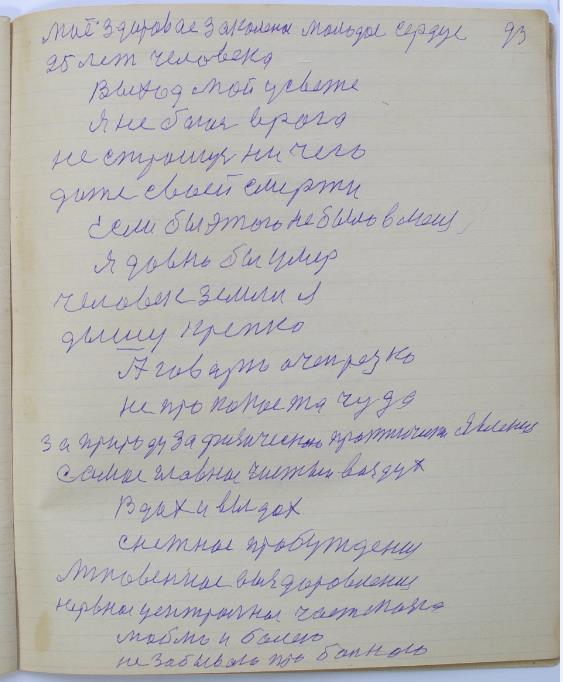 моё здоровае закаленое молодое сердце 93
25 лет человека
Выход мой у свете
Я не боюся врага
не страшуя ни чего
даже своей смерти
Если бы этого небыло в меня
Я довно бы умер
человек земли я
дышу крепко
А говарю очепрезко
не про какое та чуда
за природу за физическое практическое явления
самое главное чистый воздух
Вдох и выдох
снежное пробуждения
Мгновенное выздоровления
нервное центральное часть мозга
люблю и болею
не забываю про больного